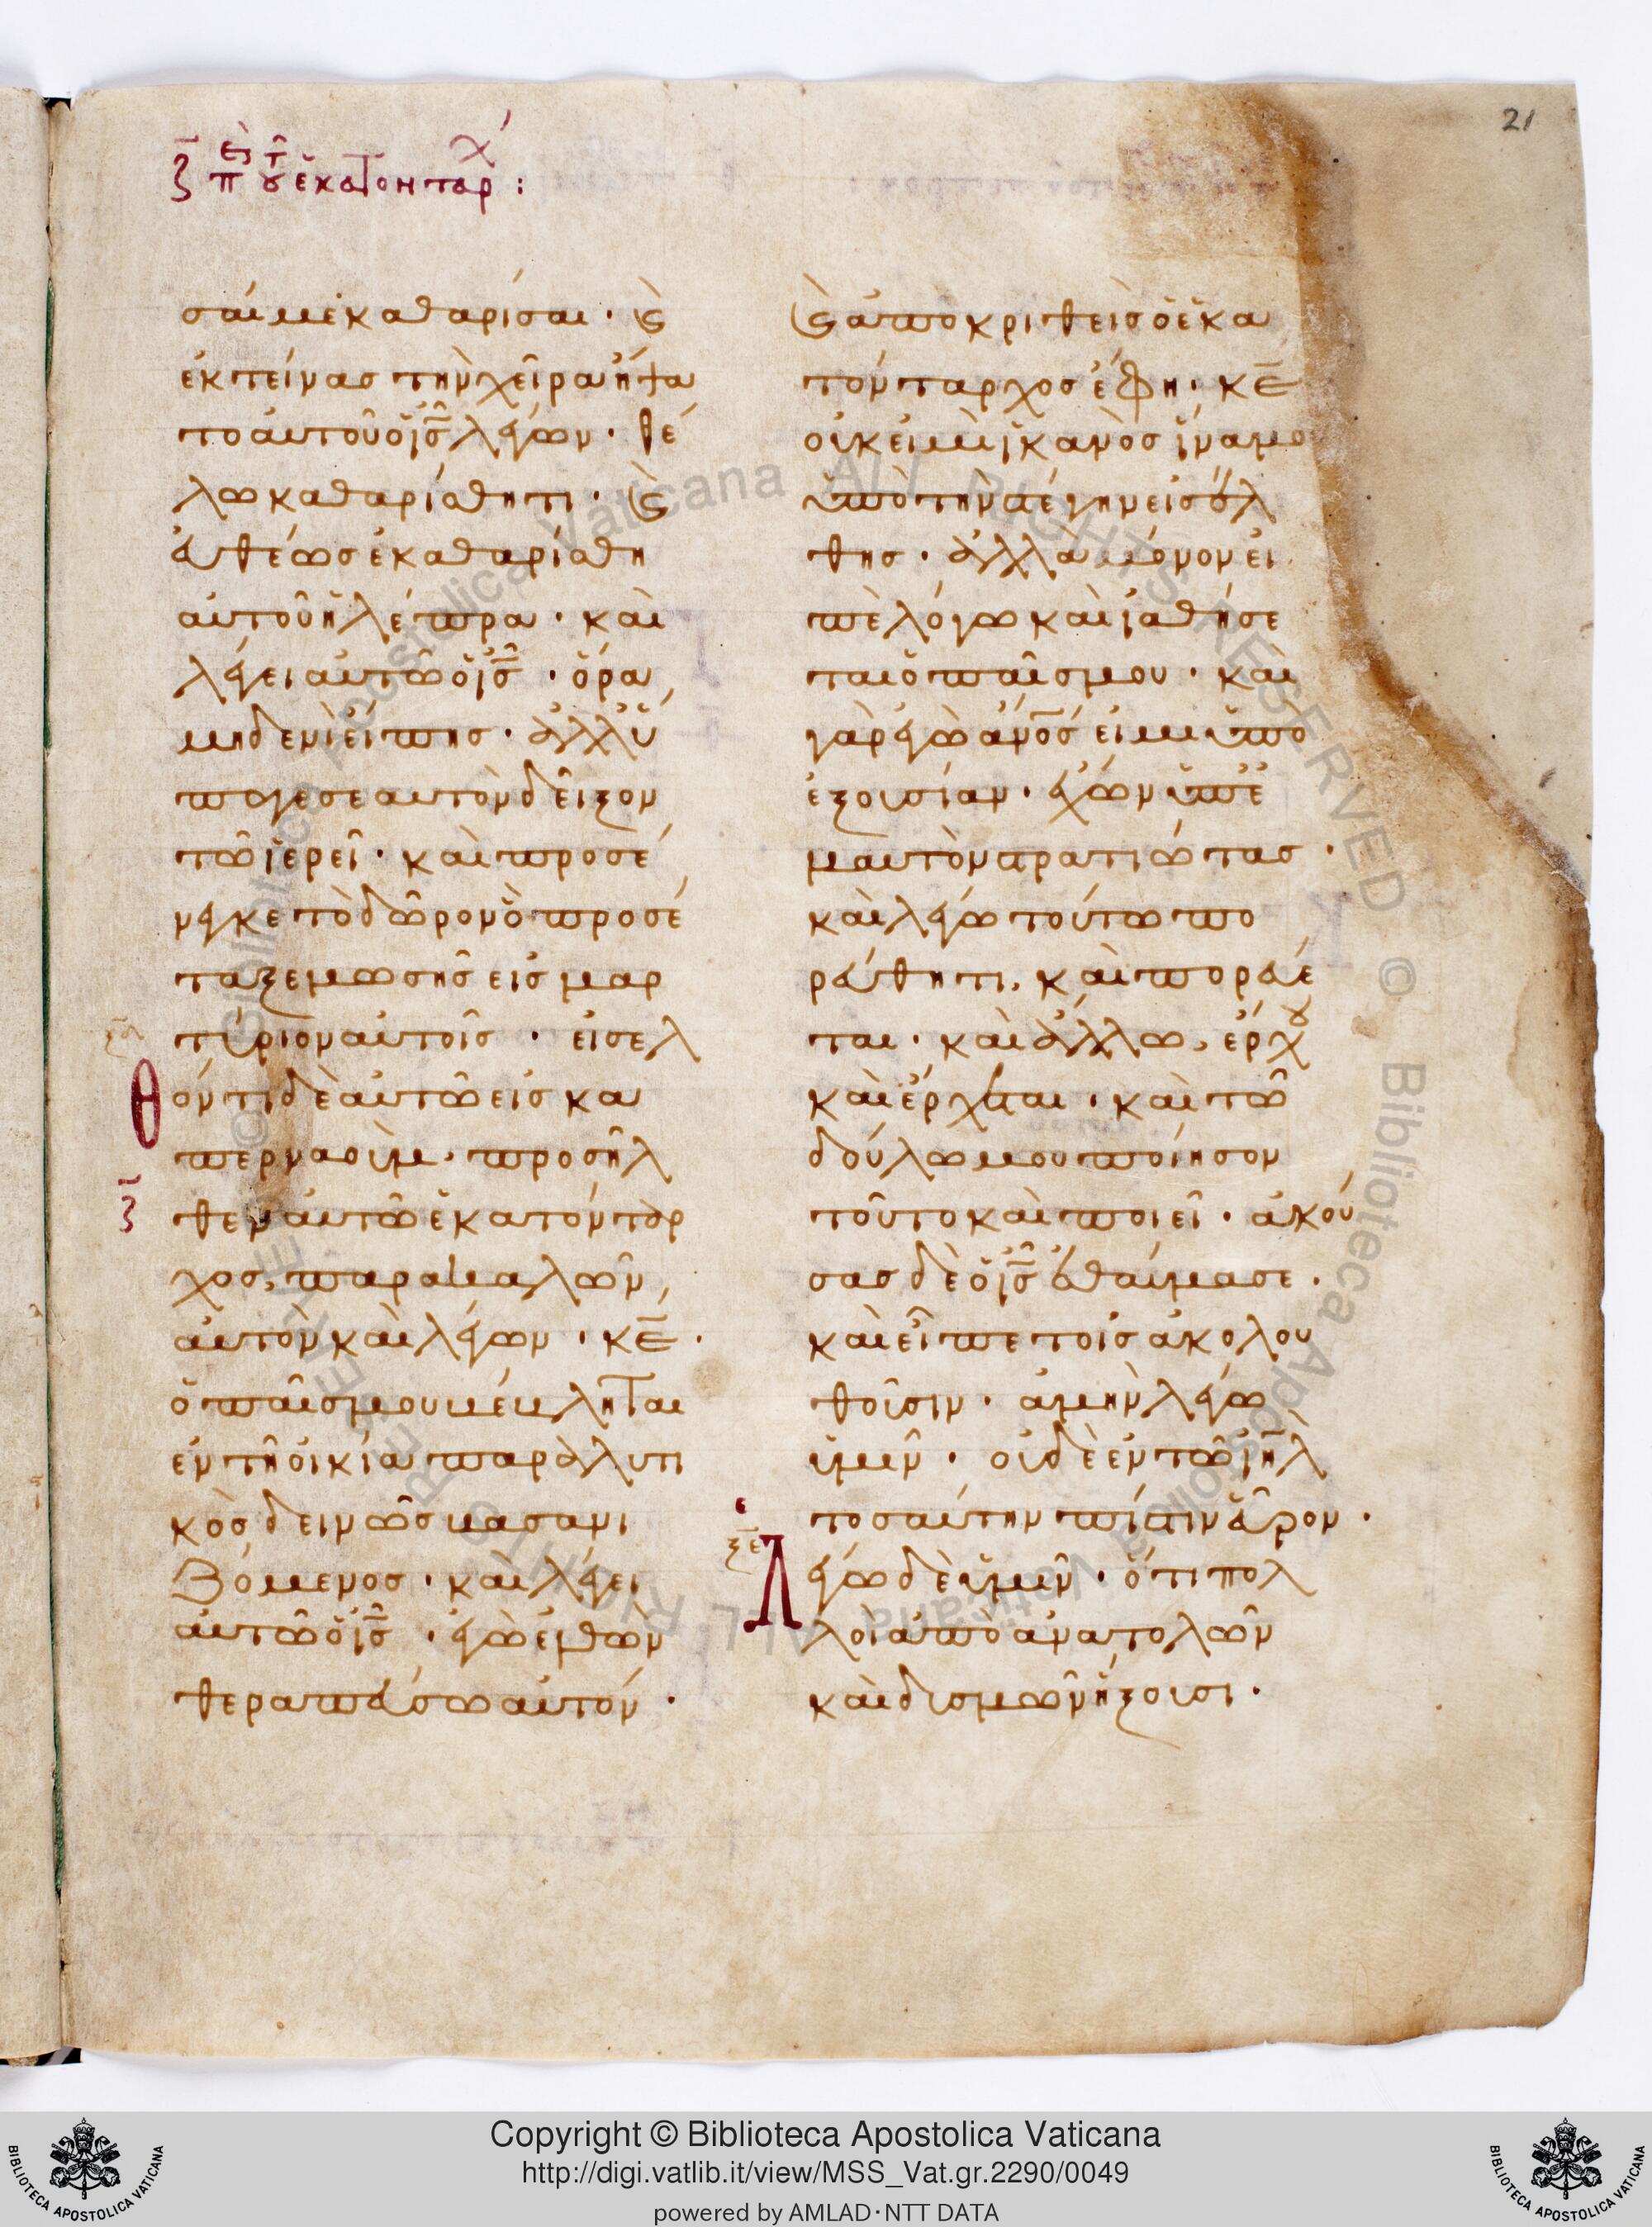 21
ζ̄ πε̣ὶ τ͂ου ἑκατοντάρχ:
σαί με καθαρίσαι· κ(αὶ)
ἐκτείνας τὴν χεῖρα ἥψα
το αὐτοῦ ὁ ις̄ λέγων· θέ
λω καθαρίσθητι· κ(αὶ)
εὐθέως ἐκαθαρίσθη
αὐτοῦ ἡ λέπρα· καὶ
λέγει αὐτῶ ὁ ις̄· ὅρα,
μηδενὶ εἴπης· ἀλλ' ὕ
παγε σεαυτὸν δεῖξον
τῶ ἱερεῖ· καὶ προσέ
νεγκε τὸ δῶρον ὃ προσέ
ταξε μωσῆς εἰς μαρ
τύριον αὐτοῖς· εἰσελ
θόντι δὲ αὐτῶ εἰς κα
περναούμ· προσῆλ
ζ̄ θεν αὐτῶ ἑκατόνταρ
χος, παρακαλῶν,
αὐτὸν καὶ λέγων· κ̄ε·
ὁ παῖς μου βέβληται
ἐν τῆ οἰκία παραλυτι
κὸς δεινῶς βασανι
ζόμενος· καὶ λέγει
αὐτῶ ὁ ις̄· ἐγὼ ἐλθὼν
θεραπεύσω αὐτόν·
κ(αὶ) ἀποκριθεὶς ὁ ἑκα
τόνταρχος ἔφη· κ̄ε
οὐκ εἰμὶ ἱκανὸς ἵνα μο
ὑπὸ τὴν στέγην εἰσέλ
θης· ἀλλὰ μόνον εἰ
πὲ λόγω καὶ ἰαθήσε
ται ὁ παῖς μου· καὶ
γὰρ ἐγὼ ἄνο̄ς εἰμι ὑπὸ
ἐξουσίαν· ἔχων ὑπ' ἐ
μαυτὸν στρατιώτας·
καὶ λέγω τούτω πο
ρεύθητι, καὶ πορεύε
ται· καὶ ἄλλω, ἔρχου
καὶ ἔρχεται· καὶ τῶ
δούλω μου ποίησον
τοῦτο καὶ ποιεῖ· ἀκού
σας δὲ ὁ ις̄ ἐθαύμασε·
καὶ εἶπε τοῖς ἀκολου
θοῦσιν· ἀμὴν λέγω
ὑμῖν· οὐδὲ ἐν τῶ ιη̄λ
τοσαύτην πίστιν εὗρον·
ξ̄ε Λέγω δὲ ὑμῖν· ὅτι πολ
λοὶ ἀπὸ ἀνατολῶν
καὶ δυσμῶν ἥξουσι·
Copyright © Biblioteca Apostolica Vaticana
http://digi.vatlib.it/view/MSS_Vat.gr.2290/0049
powered by AMLAD·NTT DATA